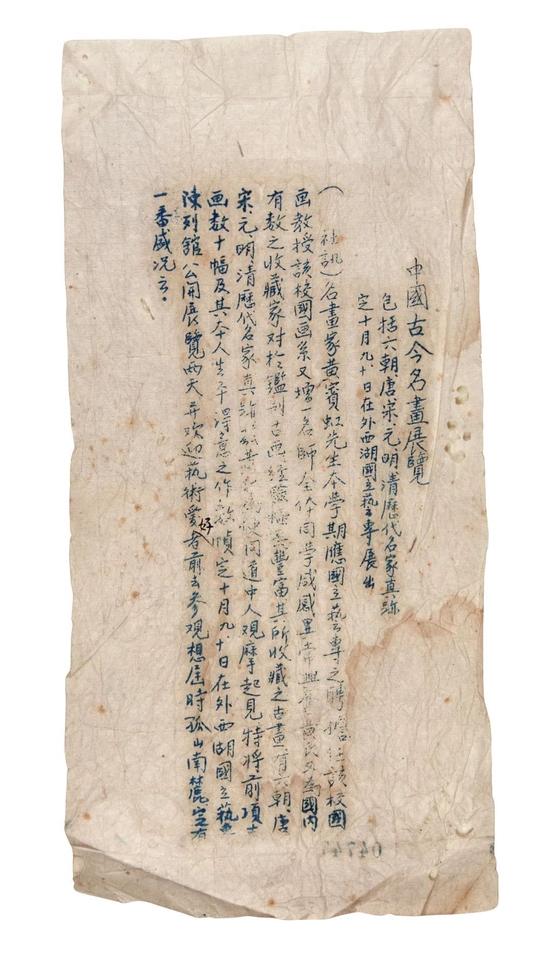 中國古今名畫展覽
包括六朝、唐、宋、元、明、清歷代名家真跡
定十月九、十日在外西湖國立藝專展出
（ 社訊）名畫家黃賓虹先生本學期應國立藝專之聘擔任該校國
画教授該校國画系又增一名師全体同學咸感異常興奮黃氏又為國內
有数之收藏家对於鑑别古典經驗極其豐富其所收藏之古畫有六朝、唐
宋、元、明、清歷代名家真跡 便同道中人观摩起見、特將前項古
画数十幅及其本人生平得意之作数幀定十月九、十日在外西湖國立藝專
陳列舘公開展覽两天并欢迎藝術愛好者前去參观想屆時孤山南麓定有
一番盛况云。